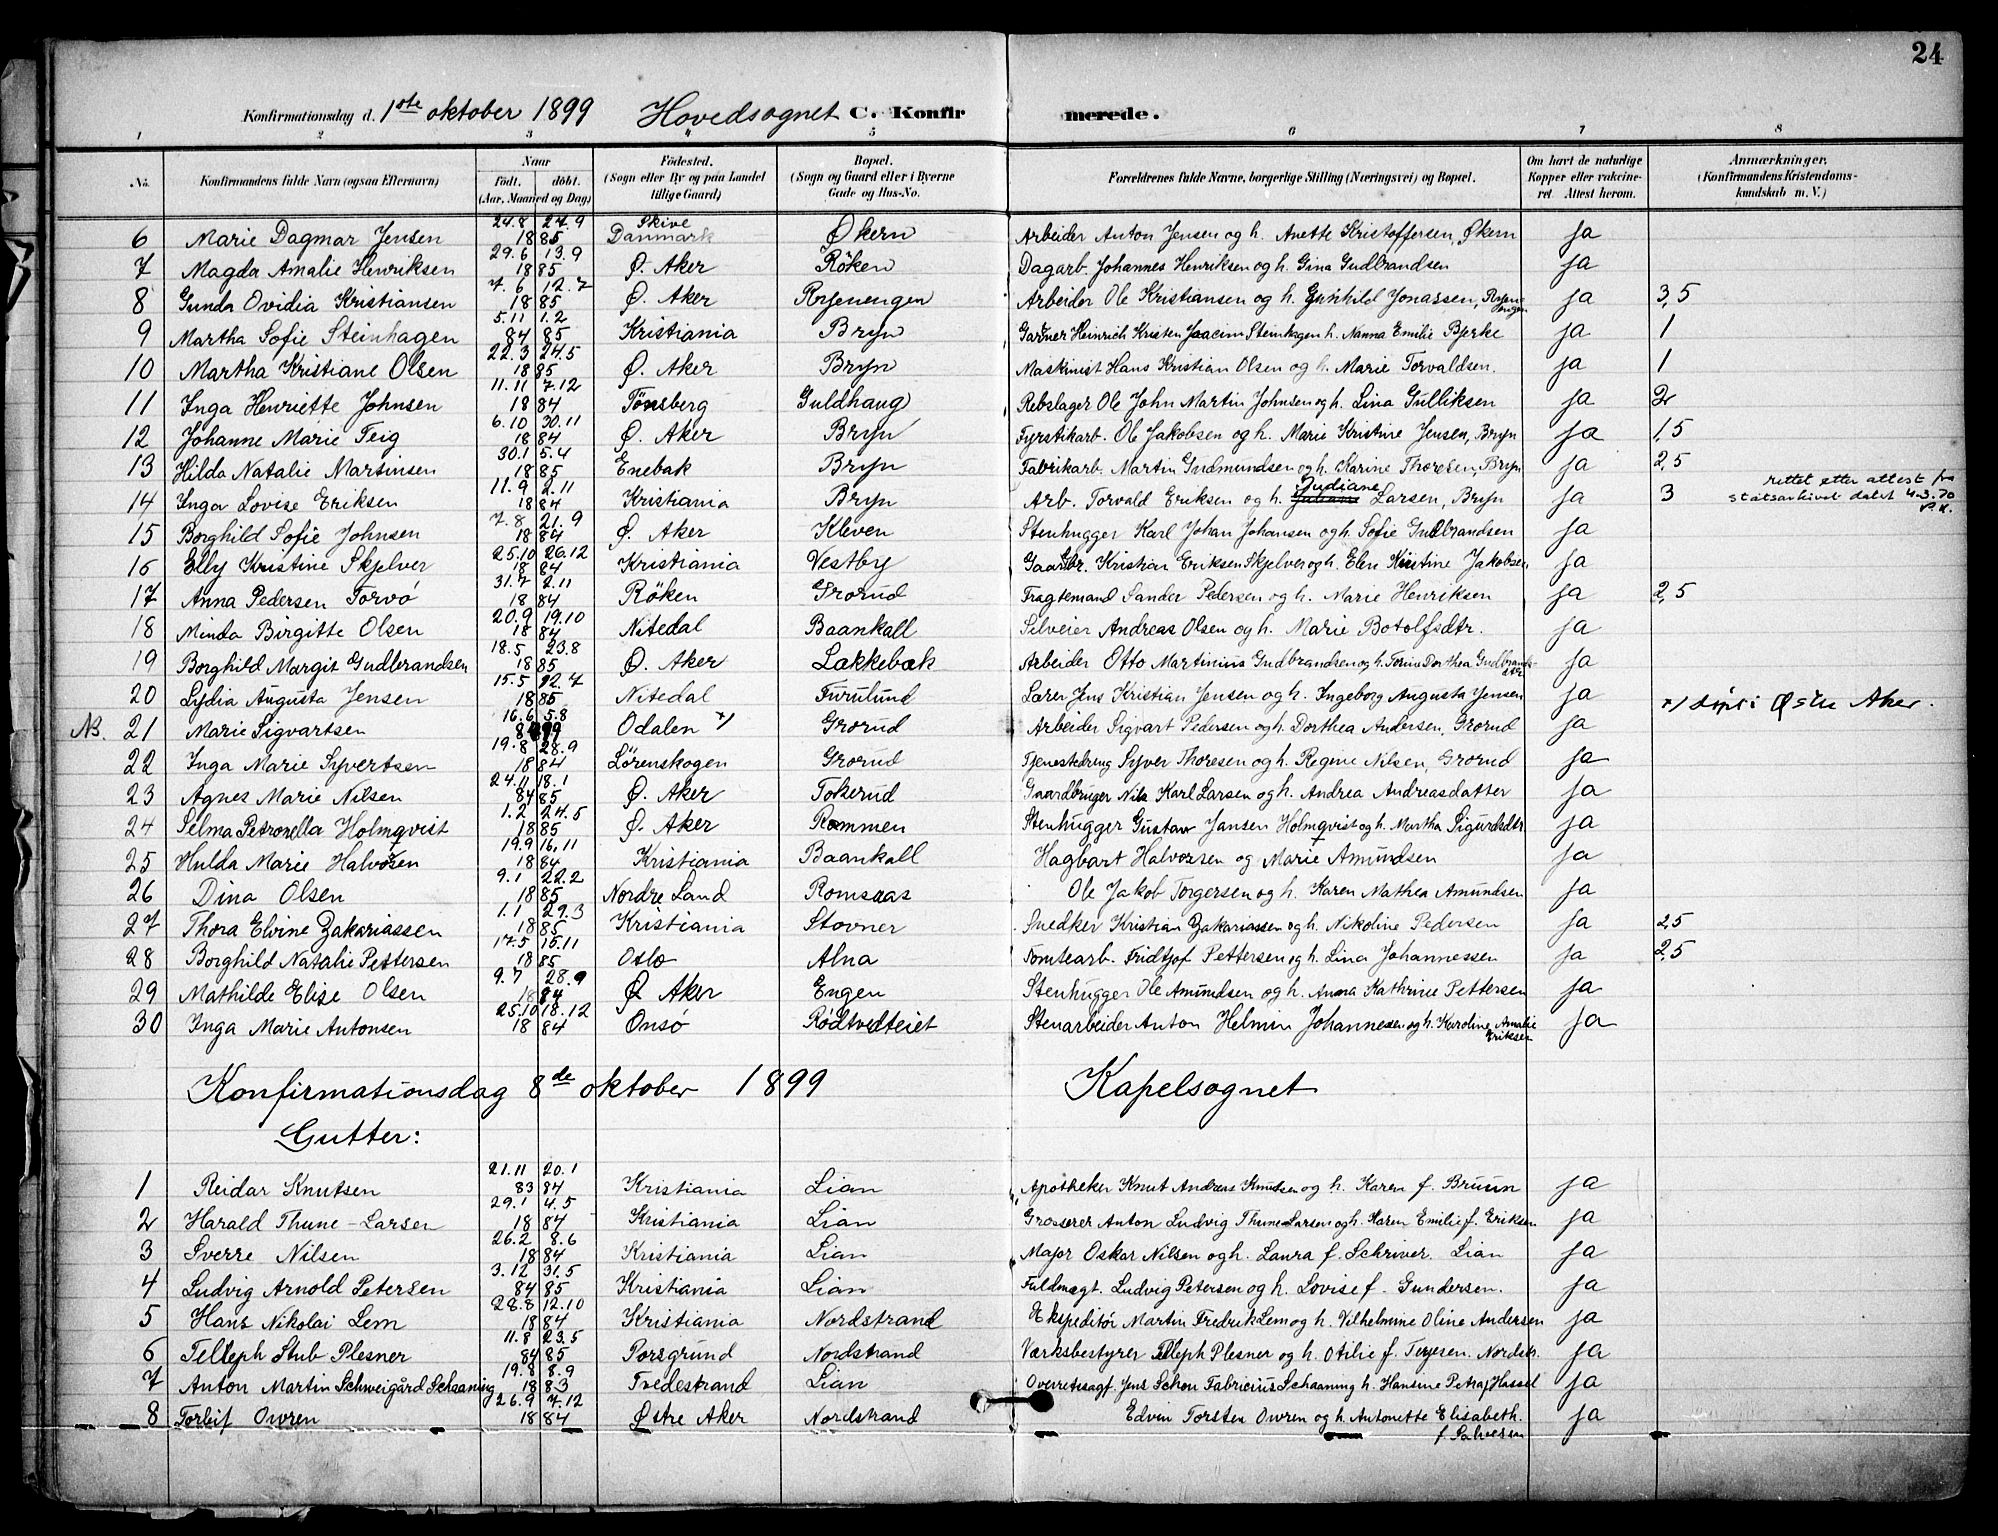 24
Konfirmationsdag d. 1ste oktober 1899 Hovedsognet C. Konfirmerede.
1 2 3 4 5 6 7 8
No. Konfirmandens fulde Navn (ogsaa Efternavn) Naar Födt. döbt. (Aar, Maaned og Dag) Födested. (Sogn eller By og paa Landet tillige Gaard) Bopæl. (Sogn og Gaard eller i Byerne Gade og Hus-No.) Forældrenes fulde Navne, borgerlige Stilling (Næringsvei) og Bopæl. Om havt de naturlige Kopper eller vakcineret. Attest herom. Anmærkninger. (Konfirmandens Kristendomskundskab m. V.)
6 Marie Dagmar Jensen 24.8 24.9 1885 Skive Danmark Økern Arbeider Anton Jensen og h. Anette Kristoffersen, Økern Ja
7 Magda Amalie Henriksen 29.6 13.9 1885 Ø. Aker Röken Dagarb. Johannes Henriksen og h. Gina Gudbrandsen Ja
8 Gunda Ovidia Kristiansen 7.6 12.7 1885 Ø. Aker Ryenengen Arbeider Ole Kristiansen og h. Gunhild Jonassen, Ryenengen Ja 3,5
9 Martha Sofie Steinhagen 5.11 1.2 84 85 Kristiania Bryn Gartner Heinrich Kristen Joacim Steinhagen h. Nanna Emilie Bjerke Ja 1
10 Martha Kristiane Olsen 22.3 24.5 1885 Ø. Aker Bryn Maskinist Hans Kristian Olsen og h. Marie Torvaldsen. Ja 1
11 Inga Henriette Johnsen 11.11 7.12 1884 Tönsberg Guldhaug Rebslager Ole John Martin Johnsen og h. Lina Gulliksen Ja 2
12 Johanne Marie Teig 6.10 30.11 1884 Ø. Aker Bryn Fyrstikarb. Ole Jakobsen og h. Marie Kristine Jensen, Bryn Ja 1,5
13 Hilda Natalie Martinsen 30.1 5.4 1885 Enebak Bryn Fabrikarb. Martin Gudmundsen og h. Karine Thoresen, Bryn Ja 2,5
14 Inga Lovise Eriksen 11.9 2.11 1884 Kristiania Bryn Arb. Torvald Eriksen og h. Judiane Larsen, Bryn Ja 3 rettet etter attest fra statsarkivet datet 4.3.70
15 Borghild Sofie Johnsen 7.8 21.9 1884 Ø. Aker Kleven Stenhugger Karl Johan Johansen og h. Sofie Gudbrandsen Ja
16 Elly Kristine Skjelver 25.10 26.12 1884 Kristiania Vestby Gaardbr. Kristian Eriksen Skjelver og h. Elen Kristine Jakobsen Ja
17 Anna Pedersen Torvö 31.7 2.11 1884 Röken Grorud Fragtemand Sander Pedersen og h. Marie Henriksen Ja 2,5
18 Minda Birgitte Olsen 20.9 19.10 1884 Nitedal Baankall Silveier Andreas Olsen og h. Marie Botolfsdtr. Ja
19 Borghild Margit Gudbrandsen 18.5 23.8 1885 Ø. Aker Lakkebæk Arbeider Otto Martinius Gudbrandsen og h. Torine Dorthea Gudbrandsdtr Ja
20 Lydia Augusta Jensen 15.5 12.7 1885 Nitedal Furulund Lærer Jens Kristian Jensen og h. Ingeborg Augusta Jensen Ja
NB. 21 Marie Sigvartsen 16.6 5.8 Odalen x) Grorud Arbeider Sigvart Pedersen og h. Dorthea Andersen, Grorud Ja x) döpt i Østre Aker.
22 Inga Marie Syvertsen 19.8 28.9 1884 Lörenskogen Grorud Tjenestedreng Syver Thoresen og h. Regine Nilsen, Grorud Ja
23 Agnes Marie Nilsen 24.11 18.1 84 85 Ø. Aker Tokerud Gaardbruger Nils Karl Larsen og h. Andrea Andreasdatter Ja
24 Selma Petronella Holmqvist 1.2 24.5 1885 Ø. Aker Rommen Stenhugger Gustav Jansen Holmqvist og h. Martha Sigurdsdtr Ja
25 Hulda Marie Halvorsen 19.9 16.11 1884 Kristiania Baankall Hagbart Halvorsen og Marie Amundsen Ja
26 Dina Olsen 9.1 22.2 1885 Nordre Land Romsaas Ole Jakob Torgersen og h. Karen Mathea Amundsen Ja
27 Thora Elvine Zakariassen 1.1 29.3 1885 Kristiania Stovner Snedker Kristian Zakariassen og h. Nikoline Pedersen Ja 2,5
28 Borghild Natalie Pettersen 17.5 15.11 1885 Oslo Alna Tomtearb. Fridtjof Pettersen og h. Lina Johannessen Ja 2,5
29 Mathilde Elise Olsen 9.7 28.9 1884 Ø Aker Engen Stenhugger Ole Amundsen og h. Anna Kathrine Pettersen Ja
30 Inga Marie Antonsen 25.10 18.12 1884 Onsö Rödtvedteiet Stenarbeider Anton Helmin Johannesen og h. Karoline Amalie Eriksen Ja
Konfirmationsdag 8de oktober 1899 Kapelsognet
Gutter:
1 Reidar Knutsen 21.11 20.1 83 84 Kristiania Lian Apotheker Knut Andreas Knutsen og h. Karen f. Bruun Ja
2 Harald Thune-Larsen 29.1 4.5 1884 Kristiania Lian Grosserer Anton Ludvig Thune Larsen og h. Karen Emilie f. Eriksen Ja
3 Sverre Nilsen 26.2 8.6 1884 Kristiania Lian Major Oskar Nilsen og h. Laura f. Schriver. Lian Ja
4 Ludvig Arnold Petersen 3.12 31.5 84 85 Kristiania Lian Fuldmægt. Ludvig Petersen og h. Lovise f. Gundersen. Ja
5 Hans Nikolai Lem 28.8 12.10 1884 Kristiania Nordstrand Ekspeditör Martin Fredrik Lem og h. Vilhelmine Oline Andersen Ja
6 Telleph Stub Plesner 11.8 23.5 84 85 Porsgrund Nordstrand Værksbestyrer Telleph Plesner og h. Otilie f. Terjesen. Nordstr. Ja
7 Anton Martin Schweigård Schaaning 19.8 8.9 1883 Tvedestrand Lian Overretssagf. Jens Schou Fabricius Schaaning h. Hansine Petra f Hassel Ja
8 Torleif Owren 26.9 7.12 1884 Østre Aker Nordstrand Edvin Torsten Owren og h. Antonette Elisabeth. f. Salvesen Ja